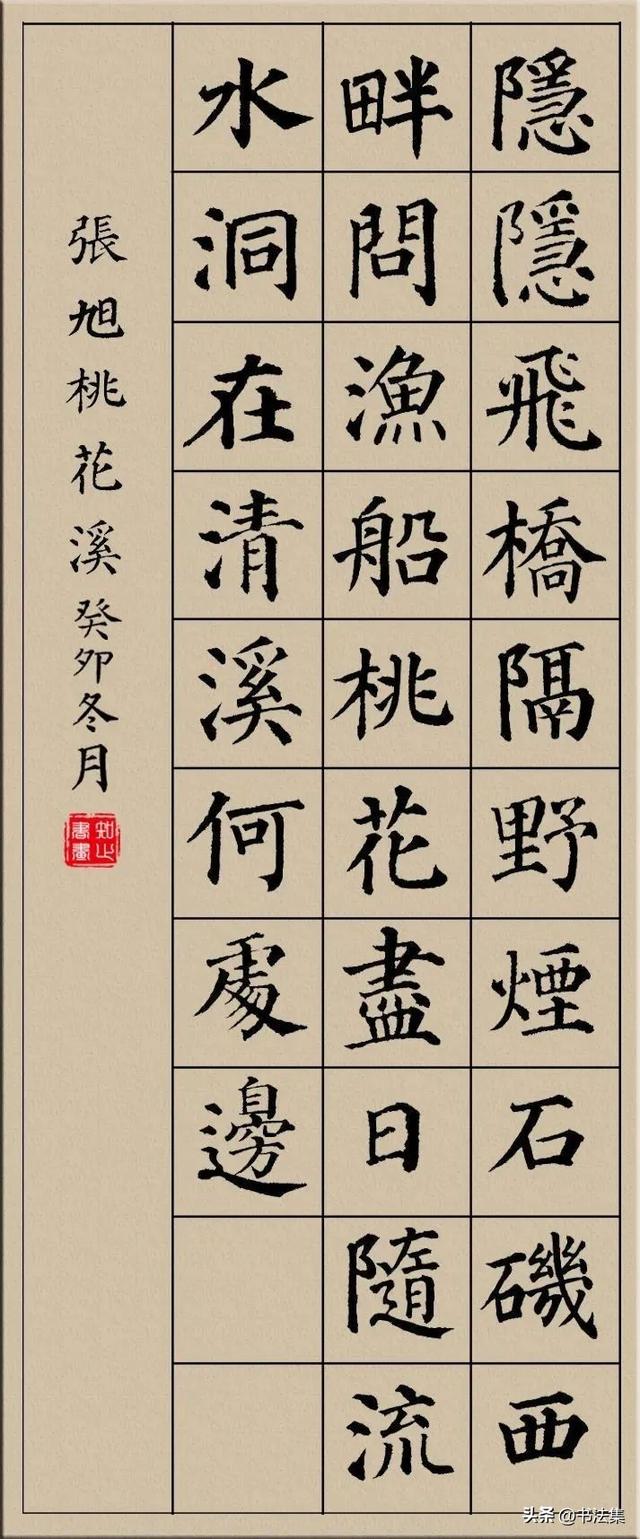 隱隱飛橋隔野煙石磯西
畔問漁船桃花盡日隨流
水洞在清溪何處邊
張旭桃花溪癸卯冬月
知止書畫
头条@书法集